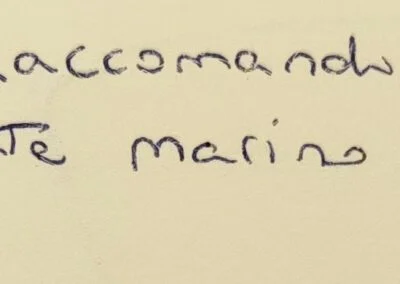 accomando
Te marino